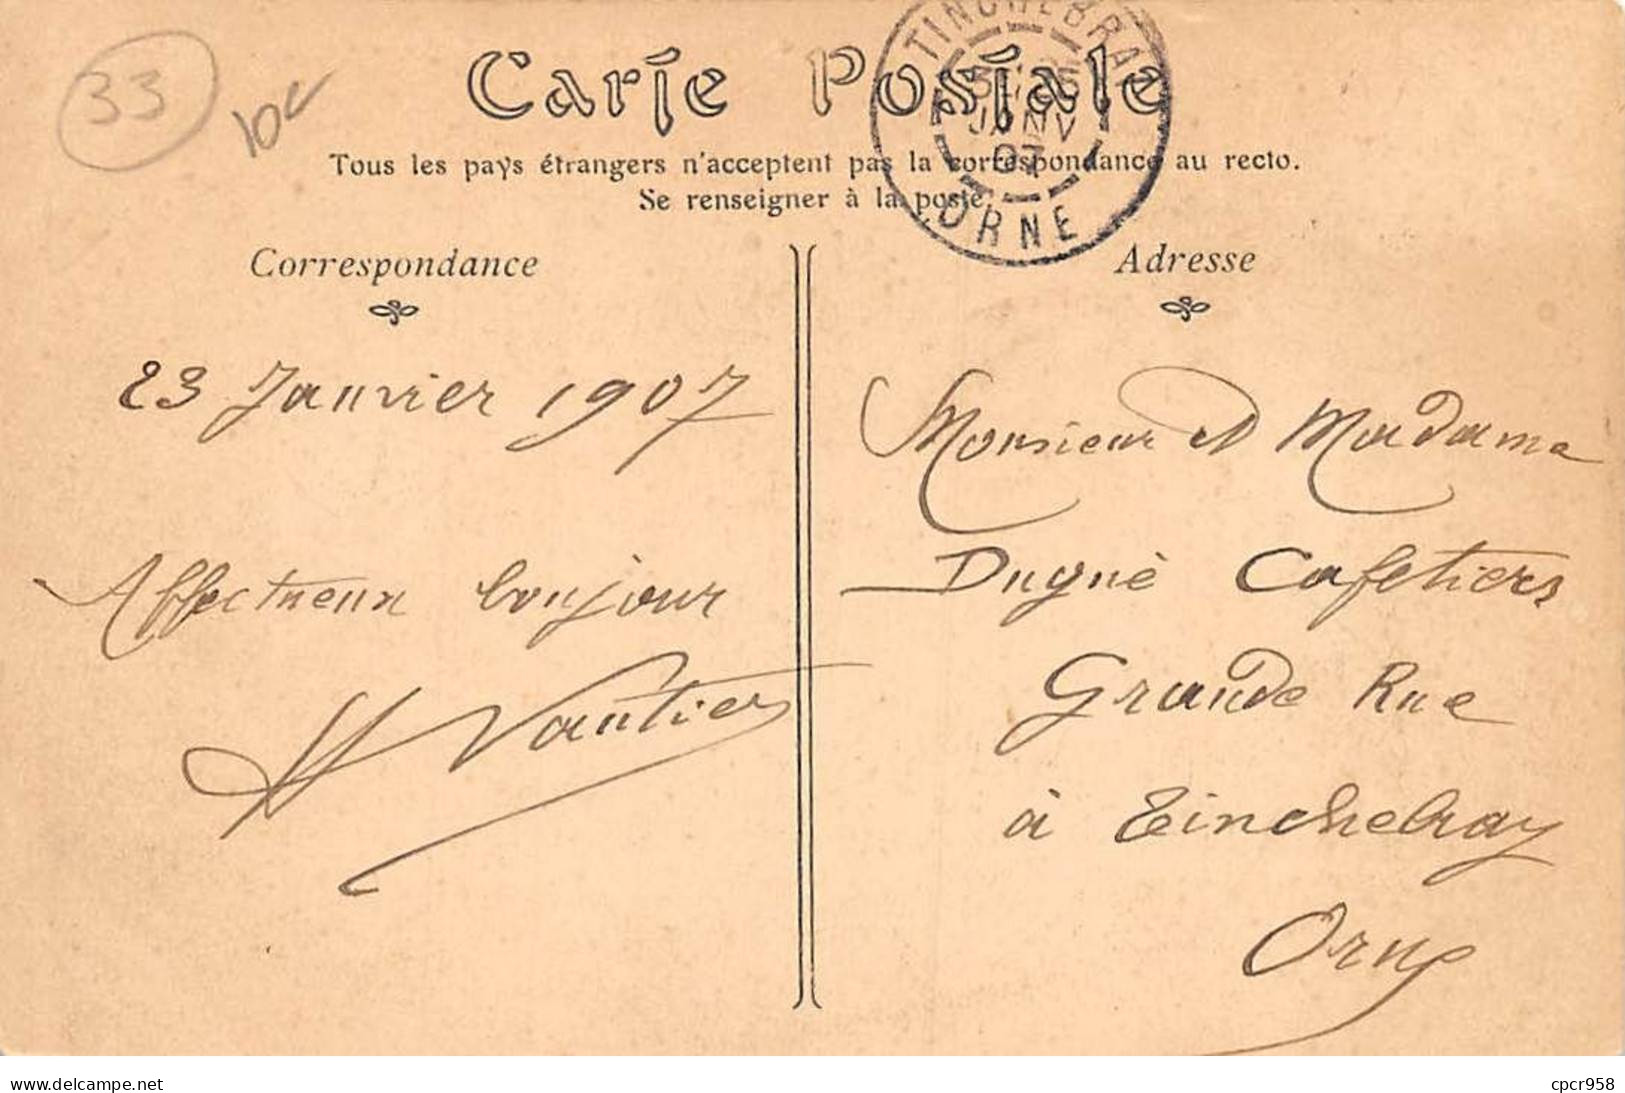 33
10
Carte Postale
TINCHEBRAY
JANV
07
ORNE
Tous les pays étrangers n'acceptent pas la correspondance au recto.
Se renseigner à la poste.
Correspondance
23 Janvier 1907
Affectueux bonjour
H Vautier
Adresse
Monsieur et Madame
Dugué Cafetiers
Grande Rue
à Tinchebray
Orne
www.delcampe.net
cpcr958